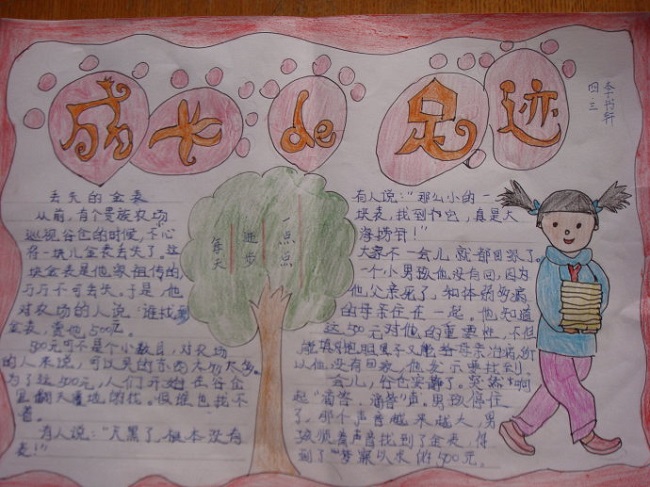 成长de足迹
四三
李书轩
丢失的金表
从前,有个
巡视谷仓的时候,不心
将一块儿金表丢失了。这
块金表是他家祖传的,
万万不可丢失。于是,他
对农场的人说:“谁找到
金表,赏他500元。
500元可不是个小数目,对农场
的人来说,可以买的东西太多
为了这500元,人们开始在谷仓
里翻天覆地的找。但谁也找不
着。
有人说:“天黑了,根本没有
表!”
一点点
进步
每天
有人说:“那么小的一
块表,找到它,真是大
海捞针!”
大家不一会儿就都回家了。
一个小男孩他没有回,因为
他父亲死了,和体弱多病
的母亲住在一起。他知道
这500元对他的重要性,不但
能填饱肚子又能给母亲治病,所
以他没有回家,他发示要找到。
一会儿,谷仓安静了。突然响
起“滴答、滴答”声。男孩停住
了。那个声音越来越大,男
孩顺着声音找到了金表,得
到了梦寐以求的500元。